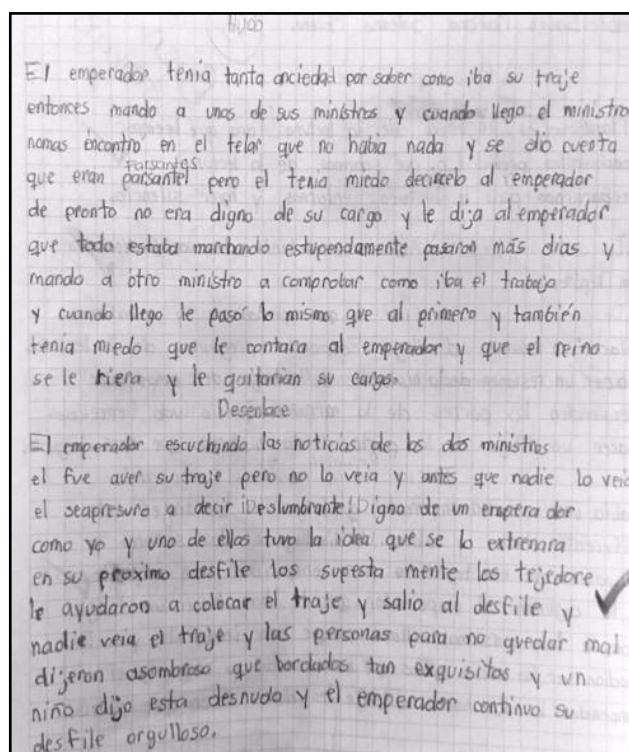 Nudo
El emperador tenia tanta anciedad por saber como iba su traje
entonces mando a unos de sus ministros y cuando llego el ministro
nomas encontro en el telar que no habia nada y se dio cuenta
Farsantes
que eran parsantel pero el tenia miedo decircelo al emperador
de pronto no era digno de su cargo y le dija al emperador
que todo estaba marchando estupendamente pasaron más dias y
mando a otro ministro a comprobar como iba el trabajo
y cuando llego le pasó lo mismo que al primero y también
tenia miedo que le contara al emperador y que el reino
se le riera y le quitarian su cargo.
Desenlace
El emperador escuchando las noticias de los dos ministros
el fue aver su traje pero no lo veia y antes que nadie lo veia
el seapresuro a decir ¡Deslumbrante! Digno de un emperador
como yo y uno de ellos tuvo la idea que se lo extrenara
en su proximo desfile los supesta mente los tejedore
le ayudaron a colocar el traje y salio al desfile y
nadie veia el traje y las personas para no quedar mal
dijeron asombroso que bordados tan exquisitos y un
niño dijo esta desnudo y el emperador continuo su
desfile orgulloso.